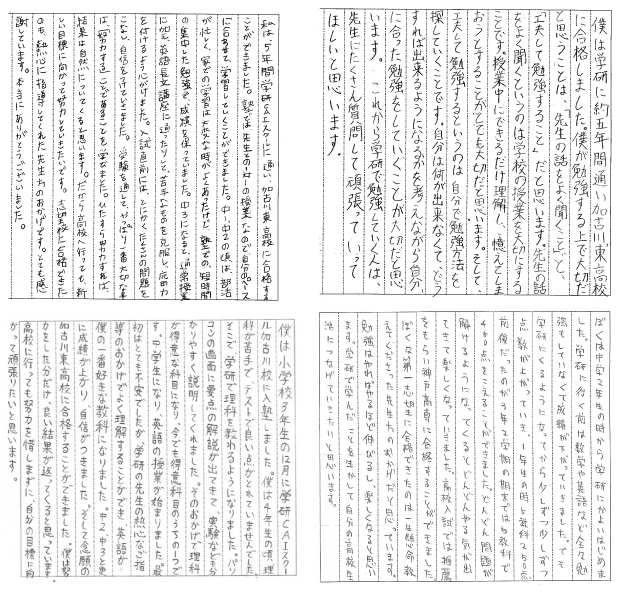 僕は学研に約五年間通い加古川東高校
に合格しました。僕が勉強する上で大切だ
と思うことは、「先生の話をよく聞くこと」と、「
工夫して勉強すること」だと思います。先生の話
をよく聞くというのは学校の授業を大切にする
ことです。授業中にできるだけ理解し、憶えてしま
おうとすることがとても大切だと思います。そして、
工夫して勉強するというのは自分で勉強方法を
探していくことです。自分は何が出来なくて、どう
すれば出来るようになるかを考えながら自分
に合った勉強をしていくことが大切だと思
います。これから学研で勉強していく人は、
先生にたくさん質問して頑張っていって
ほしいと思います。
私は5年間学研CAIスクールに通い、加古川東高校に合格する
ことができました。塾では先生との1対1の授業なので自分のペース
に合わせて、学習していくことができました。中1、中2の頃は、部活
が忙しく、家での学習は大変な時がよくあったけど、塾での短時間
の集中した勉強で、成績を保っていました。中3になると、通常授業
に加え、英語長文講座に通ったりして、苦手なものを克服し、応用力
を付けるよう心がけました。入試直前には、とにかくたくさんの問題を
こなし、自信をつけていきました。受験を通して、やっぱり一番大切な事
は、「努力すること」であることを学びました。ひたすら努力すれば、
結果は自然についてくると思います。だから高校へ行っても、新
しい目標に向かって努力していきたいです。志望校に合格できた
のも、熱心に指導してくれた先生方のおかげです。とても感
謝しています。本当にありがとうございました。
ぼくは中学2年生の時から学研にかよいはじめま
した。学研に行く前は数学や英語など全く勉
強もしていなくて成績が下がっていました。でも
学研にくるようになってから少しずつ少しずつ
点数が上がっていき、1年生の時5教科で250点
前後だったのが3年の2学期の期末では5教科で
440点をこえることができました。どんどん問題が
解けるようになってくるとどんどんやる気が出
てきて楽しくなっていきました。高校入試では推薦
をもらい神戸高専に合格することができました。
ぼくな第一志望に合格できたのは一生懸命教
えてくださった先生方のおかげだと思っています。
勉強はやればやるほど伸びるし、楽しくなると思い
ます。学研で学んだことを生かして自分の高校生
活につなげていきたいと思います。
僕は小学校3年生の12月に学研CAIスクー
ル加古川校に入塾しました。僕は4年生の頃、理
科が苦手で、テストで良い点がとれていませんでした。
そこで、学研で理科を教わるようになりました。パソ
コンの画面に要点の解説が出てきて、実験などもわ
かりやすく説明してくれました。そのおかげで理科
が得意な科目になり、今でも得意科目のうちの1つで
す。中学生になり、英語の授業が始まりました。最
初はとても不安でしたが、学研の先生の熱心なご指
導のおかげでよく理解することができ、英語が
僕の一番好きな教科になりました。中2、中3と更
に成績が上がり、自信がつきました。そして念願の
加古川東高校に合格することができました。僕は努
力をした分だけ、良い結果が返ってくると思っています。
高校に行っても努力を惜しまずに、自分の目標に向
かって頑張りたいと思います。